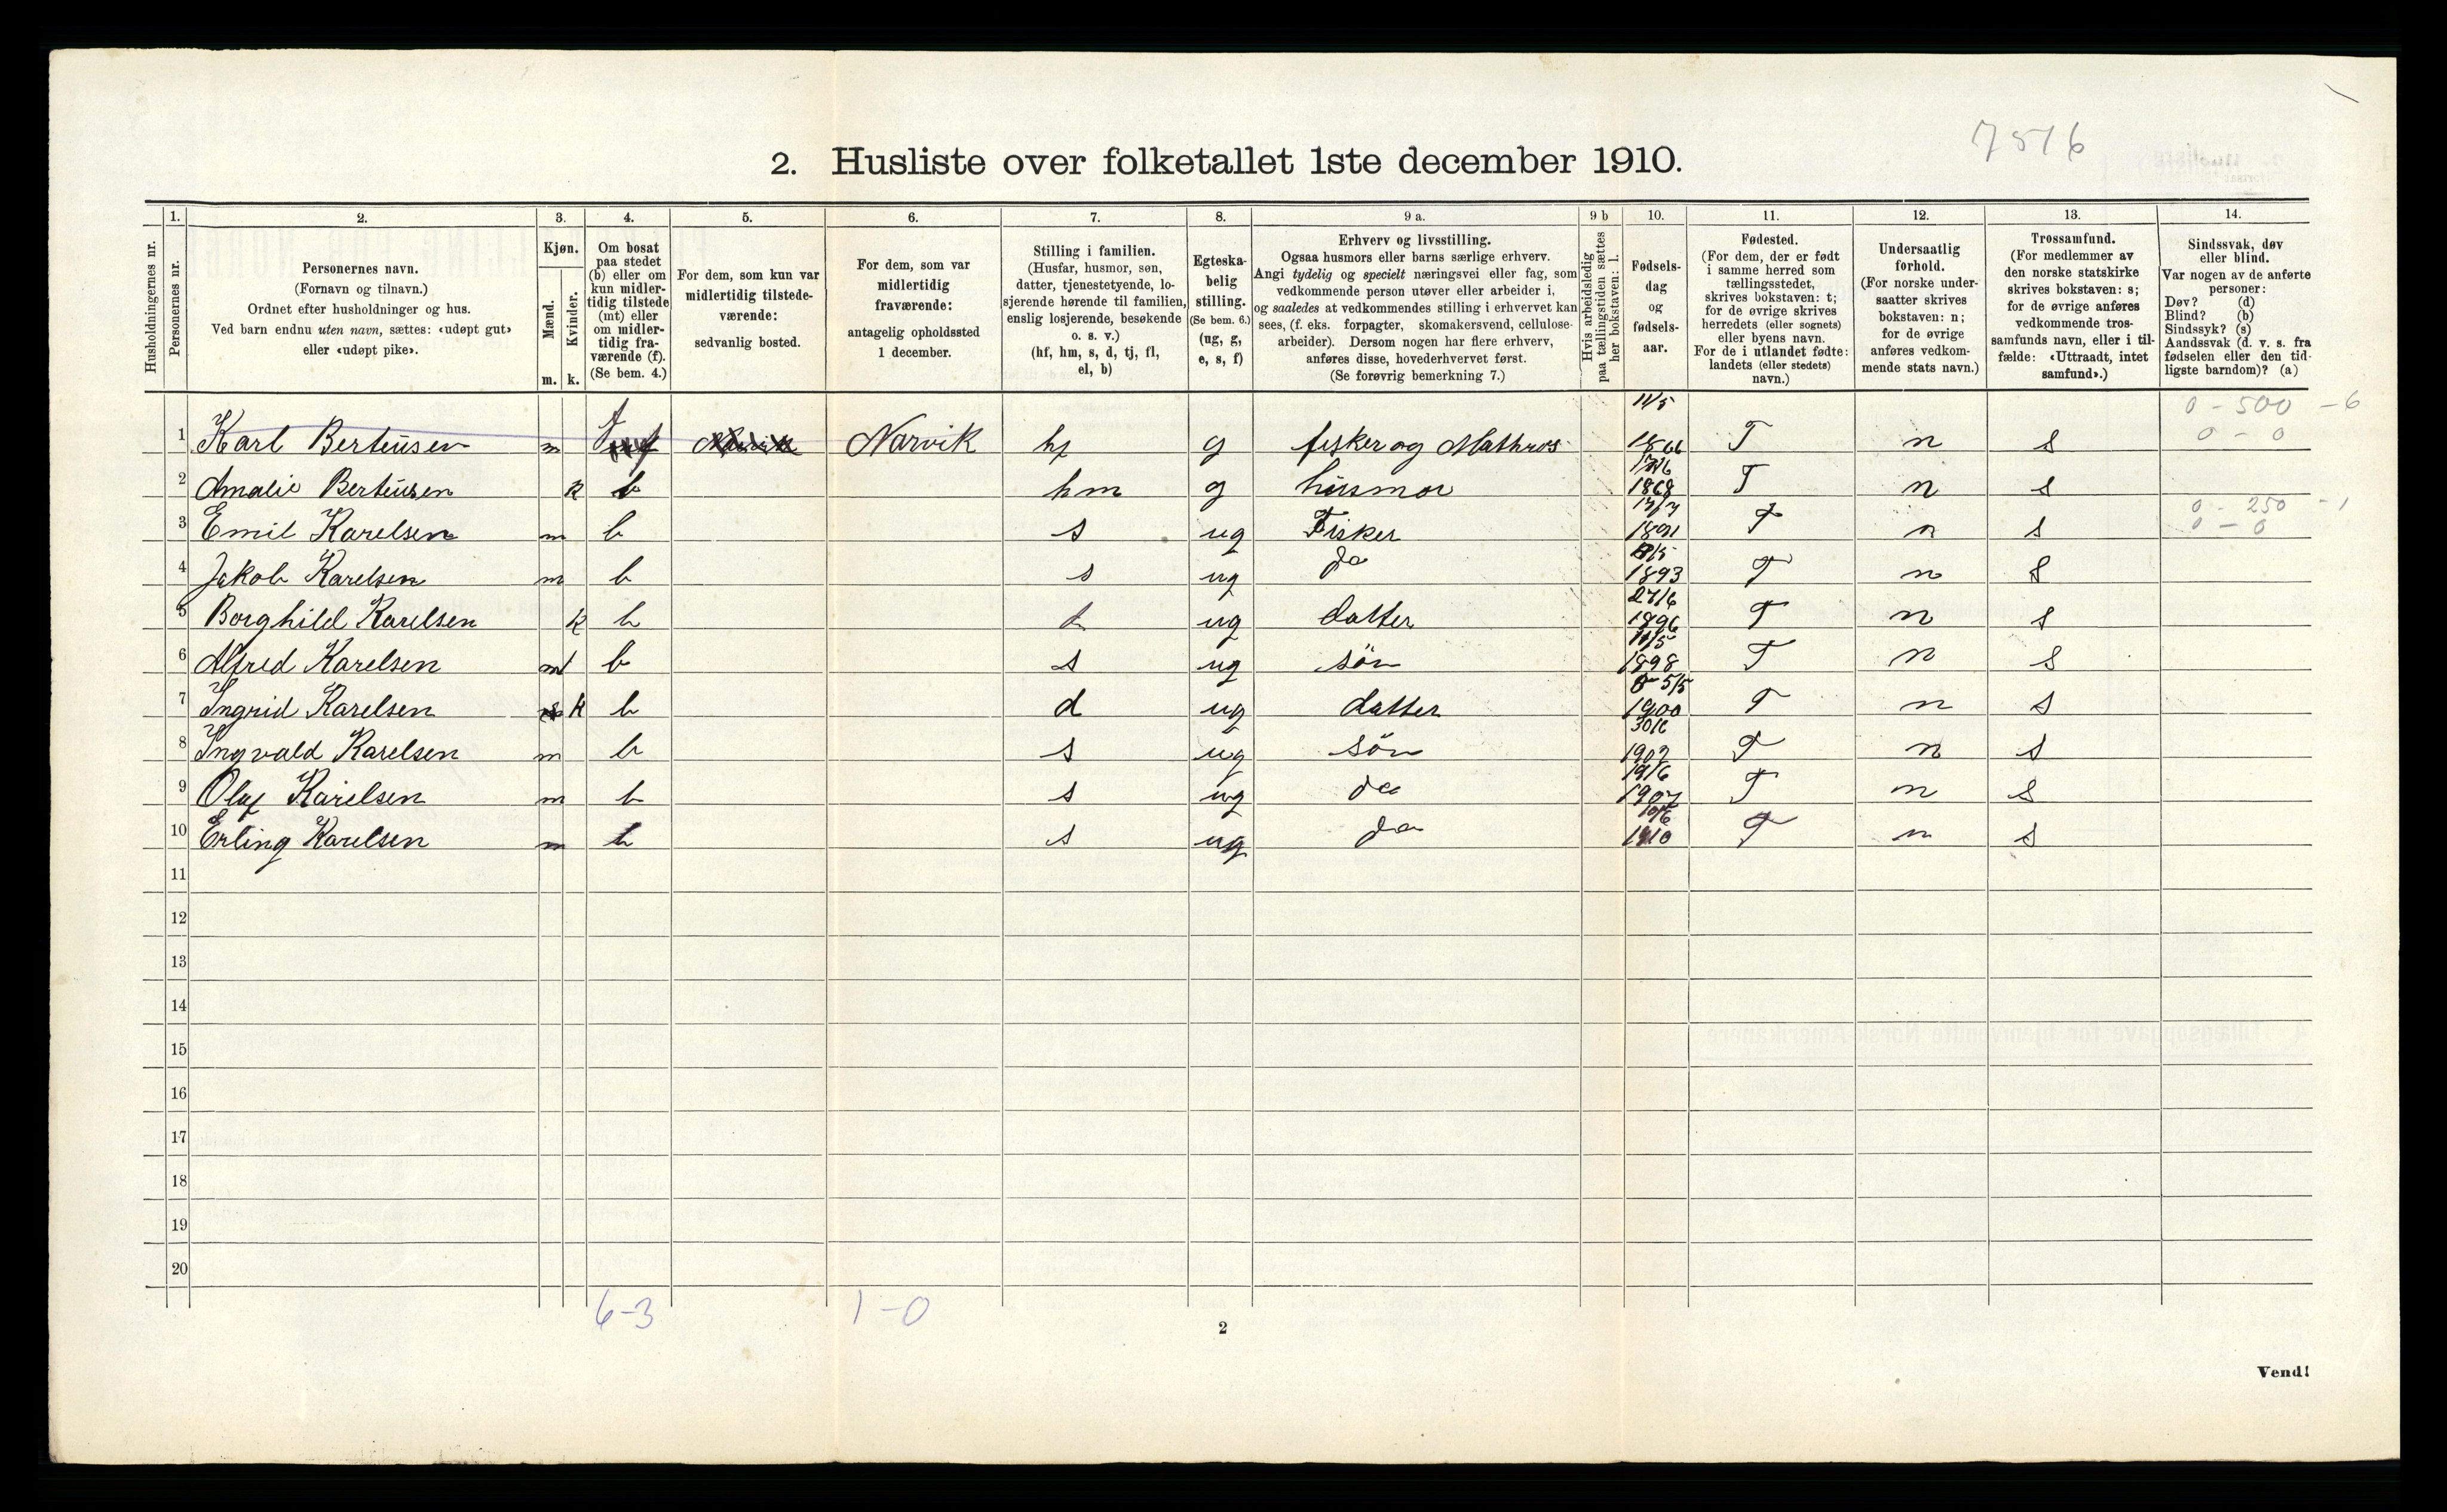 7516
2. Husliste over folketallet 1ste december 1910.
1. 2. 3. 4. 5. 6. 7. 8. 9 a. 9 b 10. 11. 12. 13. 14.
Husholdningernes nr.
Personernes nr.
Personernes navn.
(Fornavn og tilnavn.)
Ordnet efter husholdninger og hus.
Ved barn endnu uten navn, sættes: «udøpt gut»
eller «udøpt pike».
Kjøn.
Mænd.
Kvinder.
m. k.
Om bosat
paa stedet
(b) eller om
kun midler-
tidig tilstede
(mt) eller
om midler-
tidig fra-
værende (f).
(Se bem. 4.)
For dem, som kun var
midlertidig tilstede-
værende:
sedvanlig bosted.
For dem, som var
midlertidig
fraværende:
antagelig opholdssted
1 december.
Stilling i familien.
(Husfar, husmor, søn,
datter, tjenestetyende, lo-
sjerende hørende til familien,
enslig losjerende, besøkende
o. s. v.)
(hf, hm, s, d, tj, fl,
el, b)
Egteska-
belig
stilling.
(Se bem. 6.)
(ug, g,
e, s, f)
Erhverv og livsstilling.
Ogsaa husmors eller barns særlige erhverv.
Angi tydelig og specielt næringsvei eller fag, som
vedkommende person utøver eller arbeider i,
og saaledes at vedkommendes stilling i erhvervet kan
sees, (f. eks. forpagter, skomakersvend, cellulose-
arbeider). Dersom nogen har flere erhverv,
anføres disse, hovederhvervet først.
(Se forøvrig bemerkning 7.)
Hvis arbeidsledig
paa tællingstiden sættes
her bokstaven: l.
Fødsels-
dag
og
fødsels-
aar.
Fødested.
(For dem, der er født
i samme herred som
tællingsstedet,
skrives bokstaven: t;
for de øvrige skrives
herredets (eller sognets)
eller byens navn.
For de i utlandet fødte:
landets (eller stedets)
navn.)
Undersaatlig
forhold.
(For norske under-
saatter skrives
bokstaven: n;
for de øvrige
anføres vedkom-
mende stats navn.)
Trossamfund.
(For medlemmer av
den norske statskirke
skrives bokstaven: s;
for de øvrige anføres
vedkommende tros-
samfunds navn, eller i til-
fælde: «Uttraadt, intet
samfund».)
Sindssvak, døv
eller blind.
Var nogen av de anførte
personer:
Døv? (d)
Blind? (b)
Sindssyk? (s)
Aandssvak (d. v. s. fra
fødselen eller den tid-
ligste barndom)? (a)
11/5 0 - 500 - 6
1 Karl Berteusen m f Narvik hf g fisker og Mathros 1866 T n s 0 - 0
2 Amalie Berteusen k b hm g husmor 1868 T n s
0 - 250 - 1
3 Emil Karelsen m b s ug Fisker 1891 T n s 0 - 0
4 Jakob Karelsen m b s ug do 1893 T n s
27/6
5 Borghild Karelsen k b d ug datter 1896 T n s
11/5
6 Alfred Karelsen m b s ug sön 1898 T n s
5/5
7 Ingrid Karelsen k b d ug datter 1900 T n s
30/6
8 Ingvald Karelsen m b s ug sön 1902 T n s
19/6
9 Olaf Karelsen m b s ug do 1907 T n s
10 Erling Karelsen m b s ug do 1910 T n s
11
12
13
14
15
16
17
18
19
20
6-3 1-0
2
Vend!